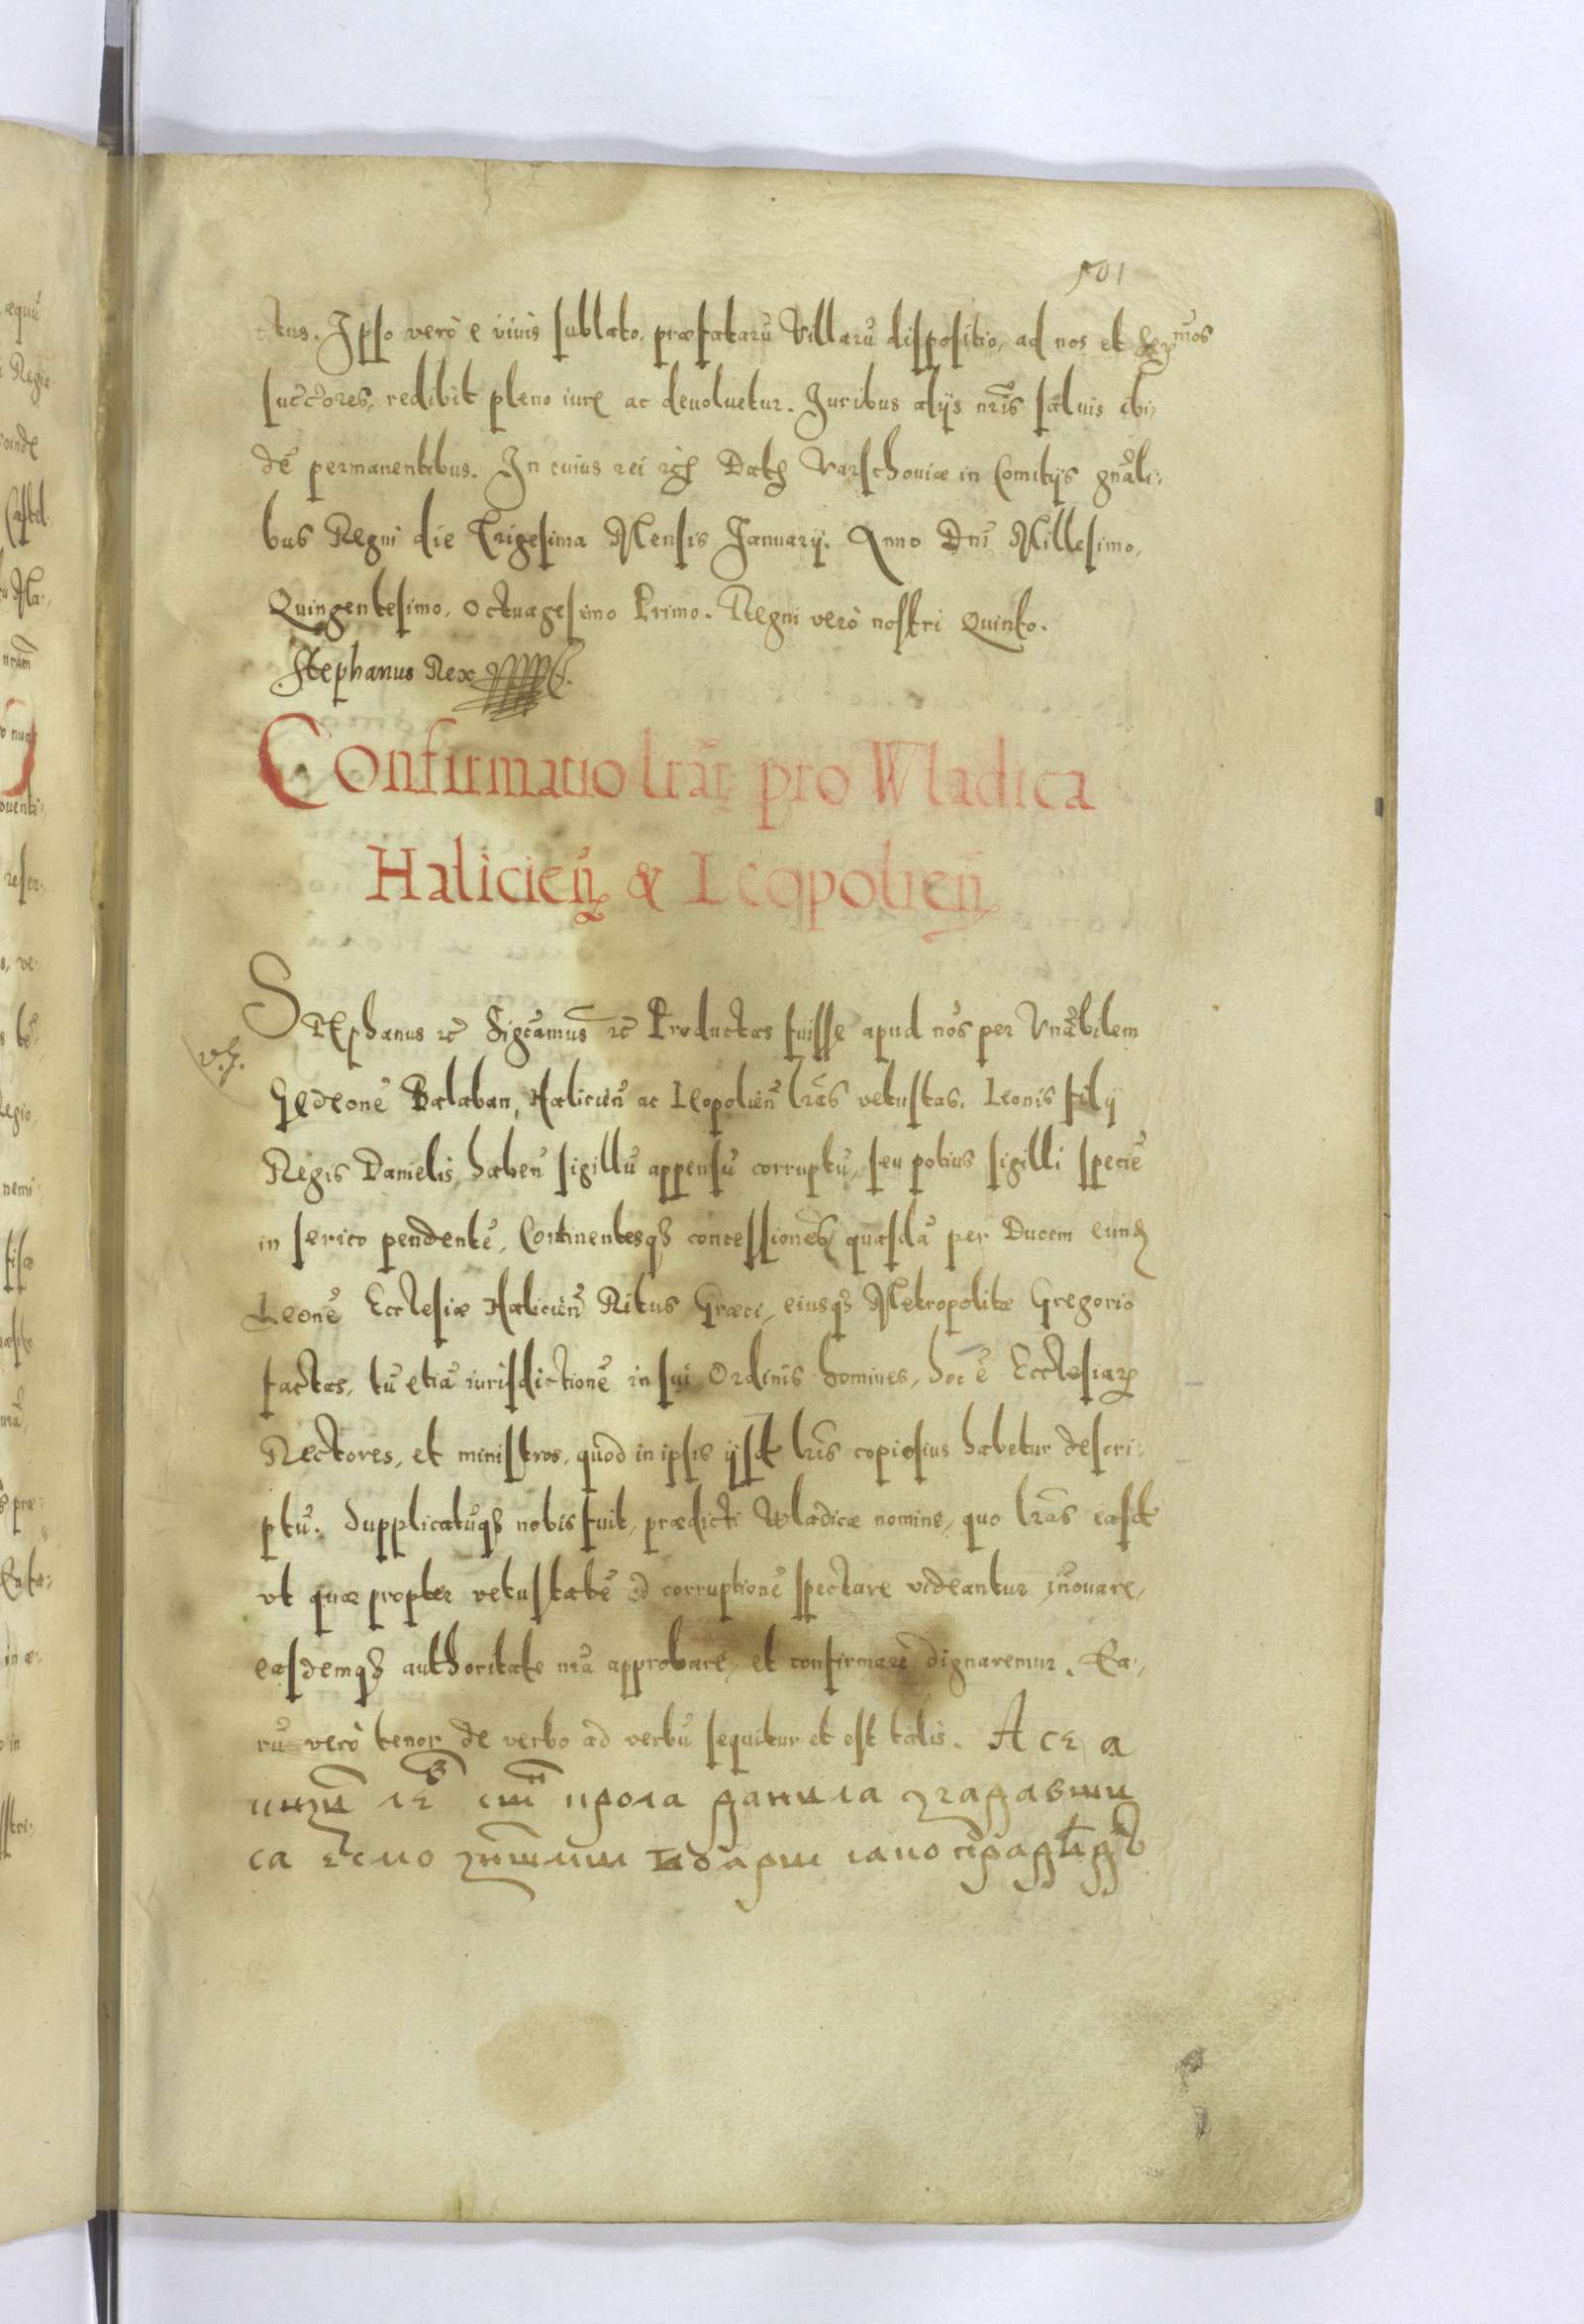 501
ctus. Ipso verò e viuis sublato, præfatarũ Villarũ dispositio, ad nos et Seren̄mos
succ̃ores, redibit pleno iure ac deuoluetur. Iuribus alijs nr̃is saluis ibi,
dẽ permanentibus. In cuius rei Varschouiæ in Comitijs gnãli,
bus Regni die Trigesima Mensis Ianuarij. Anno Dni Millesimo,
Quingentesimo, Octuagesimo Primo. Regni verò nostri Quinto.
Stephanus Rex
Confirmatio lrãꝝ pro Wladica
Halicieñ & Leopolieñ
Stephanus rc̃ Sigc̃amus rc̃ Productas fuisse apud nos per Vnãbilem
Gedeonẽ Balaban, Halicieñ ac Leopolieñ lrãs vetustas, Leonis filij
Regis Danielis, habeñ sigillũ appensũ corruptũ, seu potius sigilli speciẽ
in serico pendentẽ, Continentesqꝫ concessiones quasdã per Ducem eund
Leonẽ Ecclesiæ Halicieñ Ritus Græci, eiusqꝫ Metropolitæ Gregorio
factas, tũ etiã iurisdictionẽ in sui Ordinis homines, hoc ẽ Ecclesiarꝝ
Rectores, et ministros, quod in ipsis ijsd lrĩs copiosius habetur descri,
ptũ. Supplicatũqꝫ nobis fuit, prædicti Wladicæ nomine, quo lrãs easd
vt quæ propter vetustatẽ ad corruptionẽ spectare videantur innouare,
easdemqꝫ authoritate nrã approbare, et confirmare dignaremur. Ea,
rũ verò tenor de verbo ad verbũ sequitur et est talis. А се, а